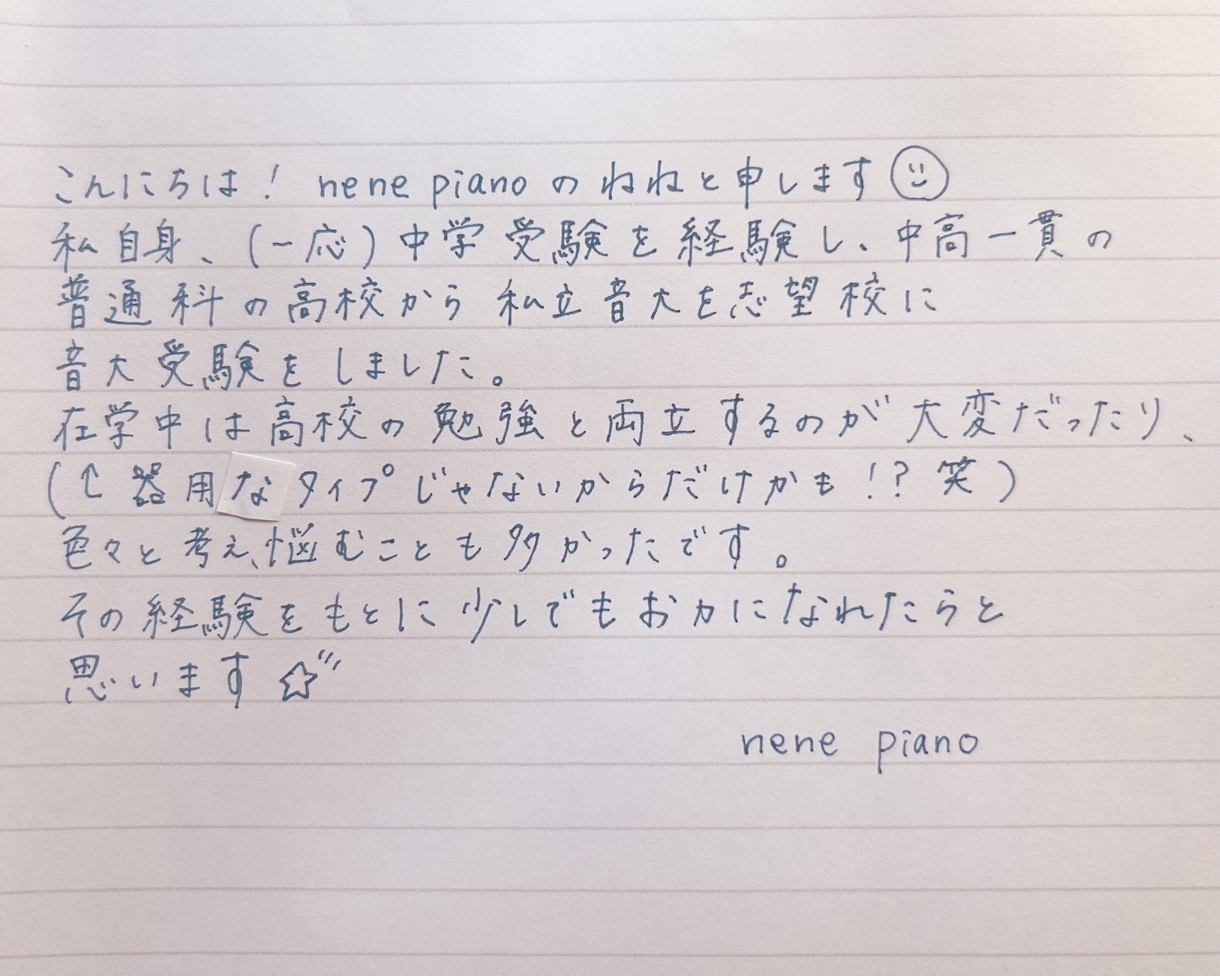 こんにちは! nene pianoのねねと申します☺
私自身、(一応)中学受験を経験し、中高一貫の
普通科の高校から私立音大を志望校に
音大受験をしました。
在学中は高校の勉強と両立するのが大変だったり、
(↑器用なタイプじゃないからだけかも!?笑)
色々と考え、悩むことも多かったです。
その経験をもとに少しでもお力になれたらと
思います☆
nene piano